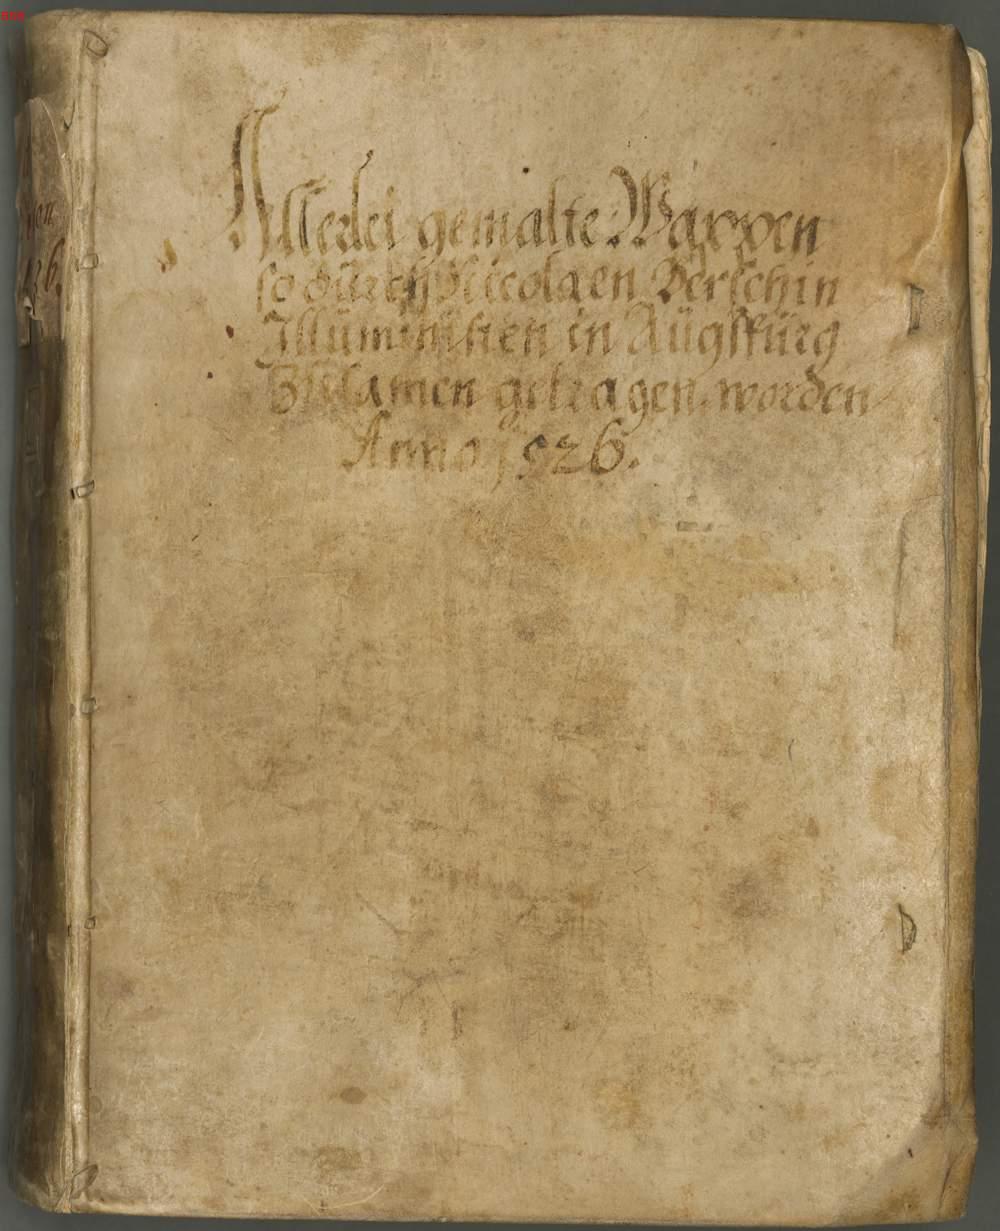 Allerlei gemalte Wappen
so durch Nicolaen Bertschin
Illuministen in Augspurg
Zusamen getragen worden
Anno 1526.